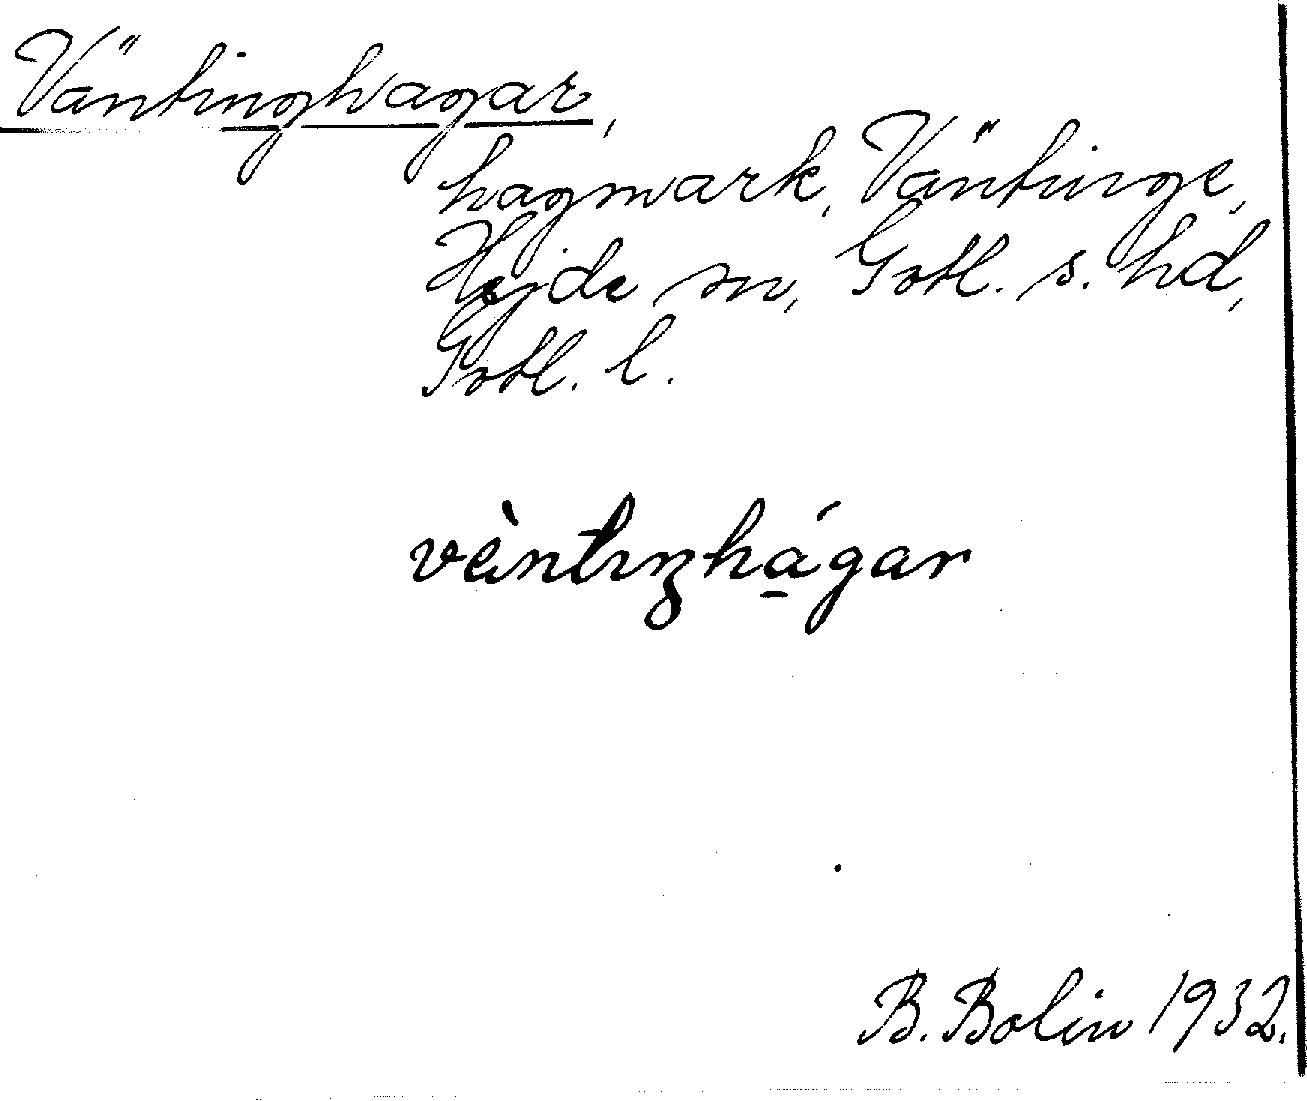 Väntinghagar,
hagmark, Väntinge,
Hejde sn, Gotl. s. hd,
Gotl. l.
vèntıŋhá̱gar
B. Bolin 1932.